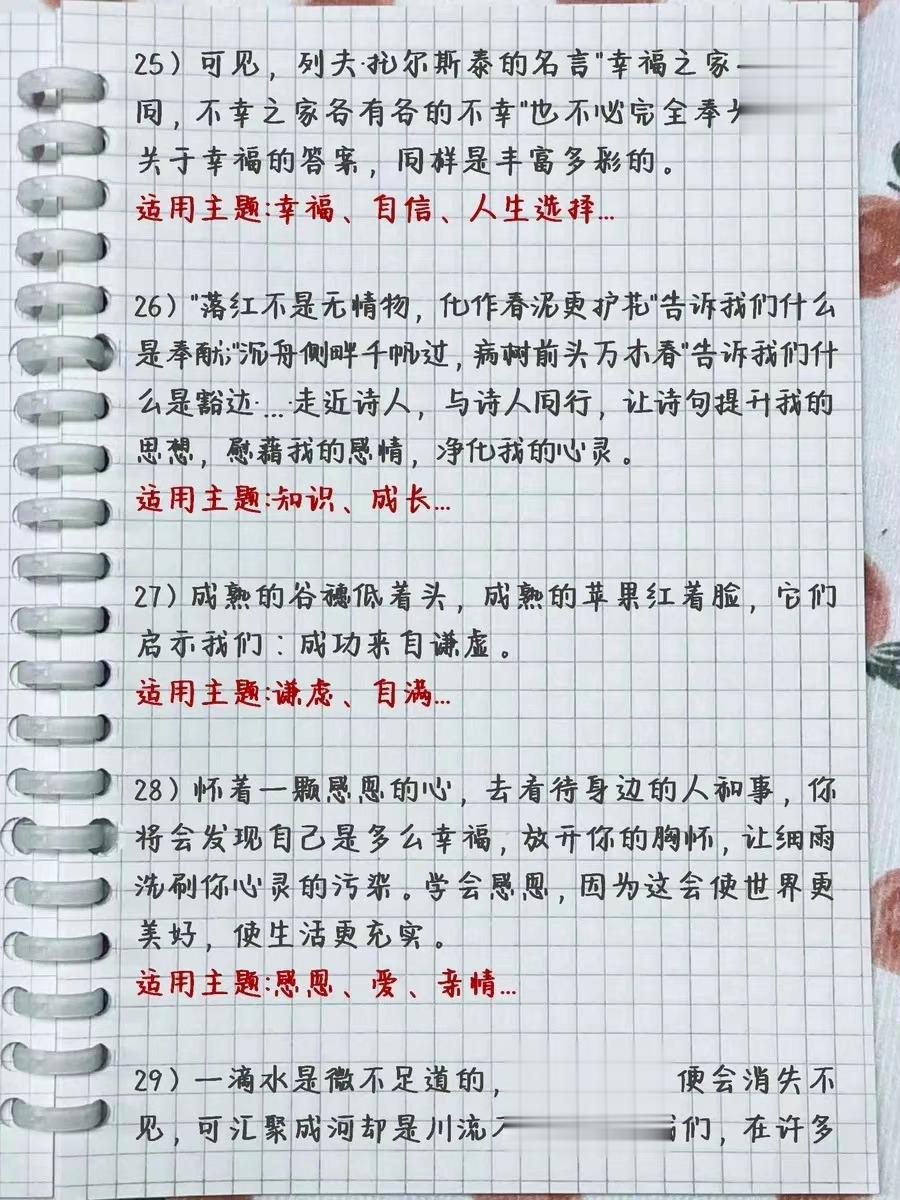 25）可见，列夫·托尔斯泰的名言"幸福之家
同，不幸之家各有各的不幸"也不必完全奉
关于幸福的答案，同样是丰富多彩的。
适用主题:幸福、自信、人生选择...
26）"落红不是无情物，化作春泥更护花"告诉我们什么
是奉献;"沉舟侧畔千帆过，病树前头万木春"告诉我们什
么是豁达·...·走近诗人，与诗人同行，让诗句提升我的
思想，慰藉我的感情，净化我的心灵。
适用主题:知识、成长...
27）成熟的谷穗低着头，成熟的苹果红着脸，它们
启示我们：成功来自谦虚。
适用主题:谦虑、自满...
28）怀着一颗感恩的心，去看待身边的人和事，你
将会发现自己是多么幸福，放开你的胸怀，让细雨
洗刷你心灵的污染。学会感恩，因为这会使世界更
美好，使生活更充实。
适用主题:感恩、爱、亲情...
29）一滴水是微不足道的，便会消失不
见，可汇聚成河却是川流们，在许多